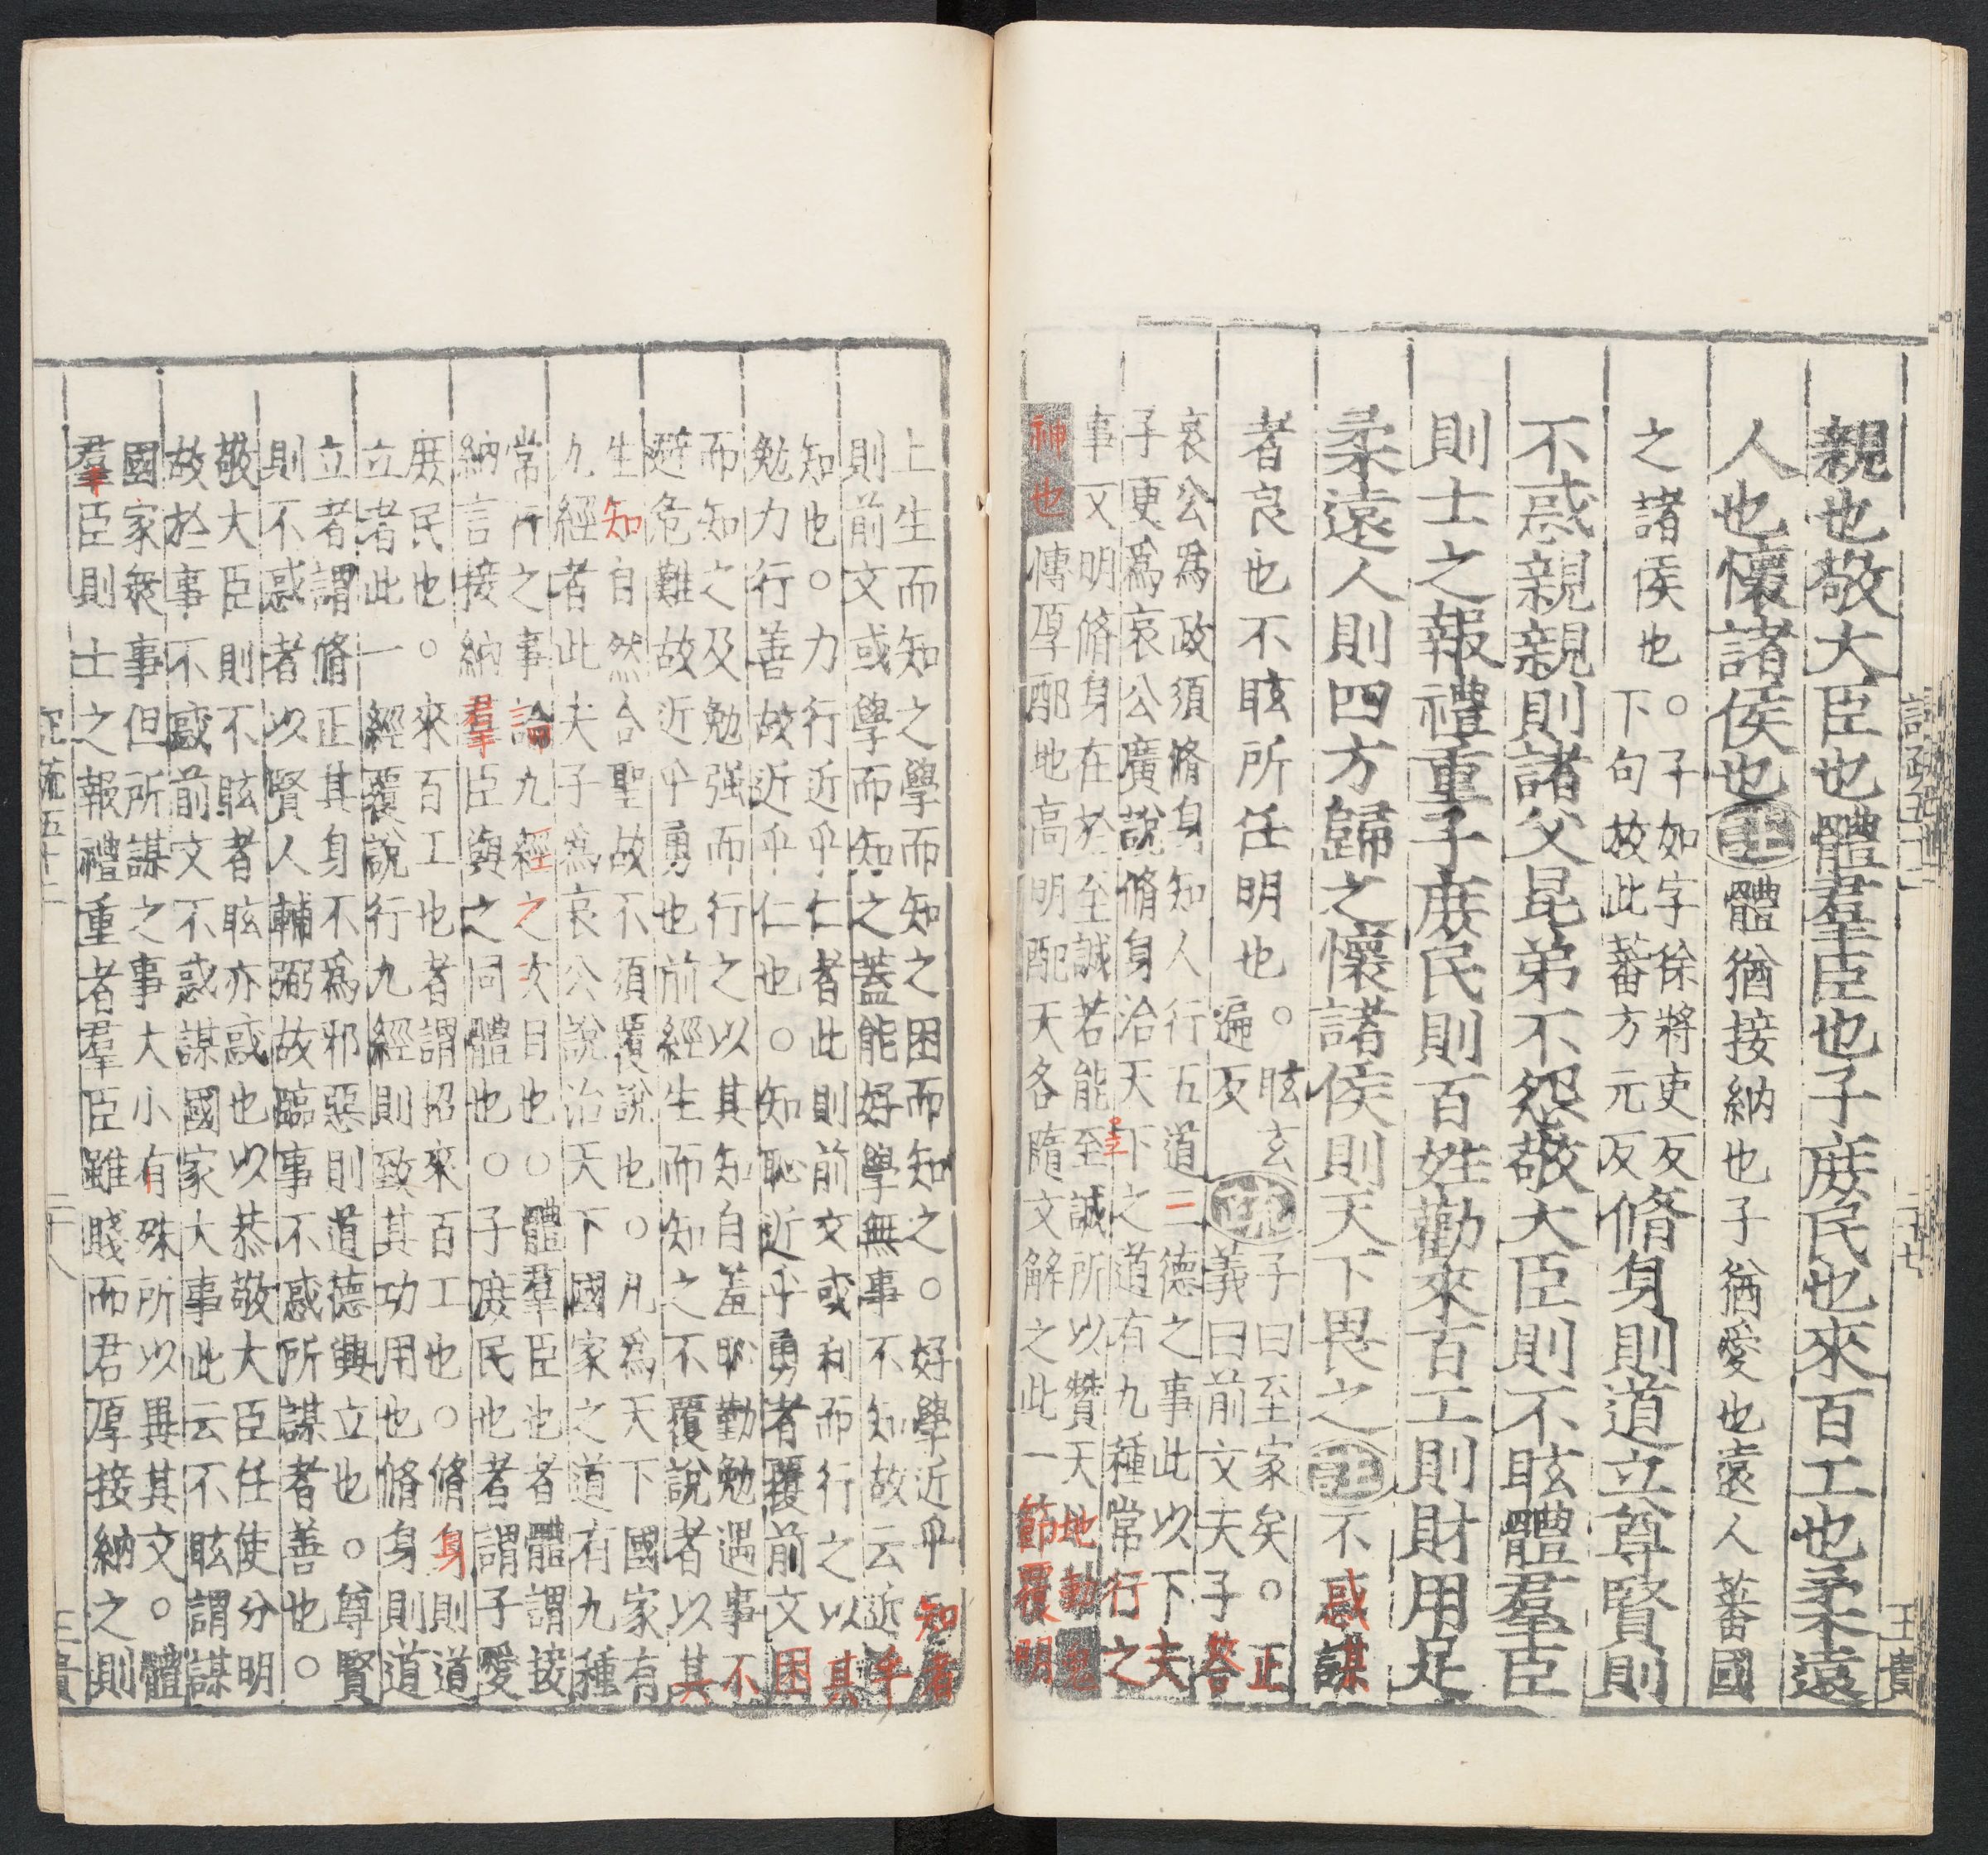 記疏五十二 二十七 王貴
親也敬大臣也體羣臣也子庶民也來百工也柔遠
人也懷諸侯也註體猶接納也子猶愛也遠人蕃國
之諸侯也
。子如字徐將吏反
下句放此蕃方元反
脩身則道立尊賢則
不惑親親則諸父昆弟不怨敬大臣則不眩體羣臣
則士之報禮重子庶民則百姓勸來百工則財用足
柔遠人則四方歸之懷諸侯則天下畏之註不惑謀
者良也不眩所任明也
。眩玄
遍反
疏
子曰至家矣。正
義曰前文夫子荅
哀公爲政須脩身知人行五道三德之事此以下夫
子更爲哀公廣說脩身治天下之道有九種常行之
事又明脩身在於至誠若能至誠所以贊天地動鬼
神也博厚配地高明配天各隨文解之此一節覆明
上生而知之學而知之困而知之。好學近乎知者
則前文或學而知之蓋能好學無事不知故云近乎
知也。力行近乎仁者此則前文或利而行之以其
勉力行善故近乎仁也。知恥近乎勇者覆前文困
而知之及勉强而行之以其知自羞恥勤勉遇事不
避危難故近乎勇也前經生而知之不覆說者以其
生知自然合聖故不須覆說也。凡爲天下國家有
九經者此夫子爲哀公說治天下國家之道有九種
常行之事論九經之次目也。體羣臣也者體謂接
納言接納羣臣與之同體也。子庶民也者謂子愛
庶民也。來百工也者謂招來百工也。脩身則道
立者此一經覆說行九經則致其功用也脩身則道
立者謂脩正其身不爲邪惡則道德興立也。尊賢
則不惑者以賢人輔弼故臨事不惑所謀者善也。
敬大臣則不眩者眩亦惑也以恭敬大臣任使分明
故於事不惑前文不惑謀國家大事此云不眩謂謀
國家衆事但所謀之事大小有殊所以異其文。體
羣臣則士之報禮重者羣臣雖賤而君厚接納之則
記疏五十二 二十八 王貴